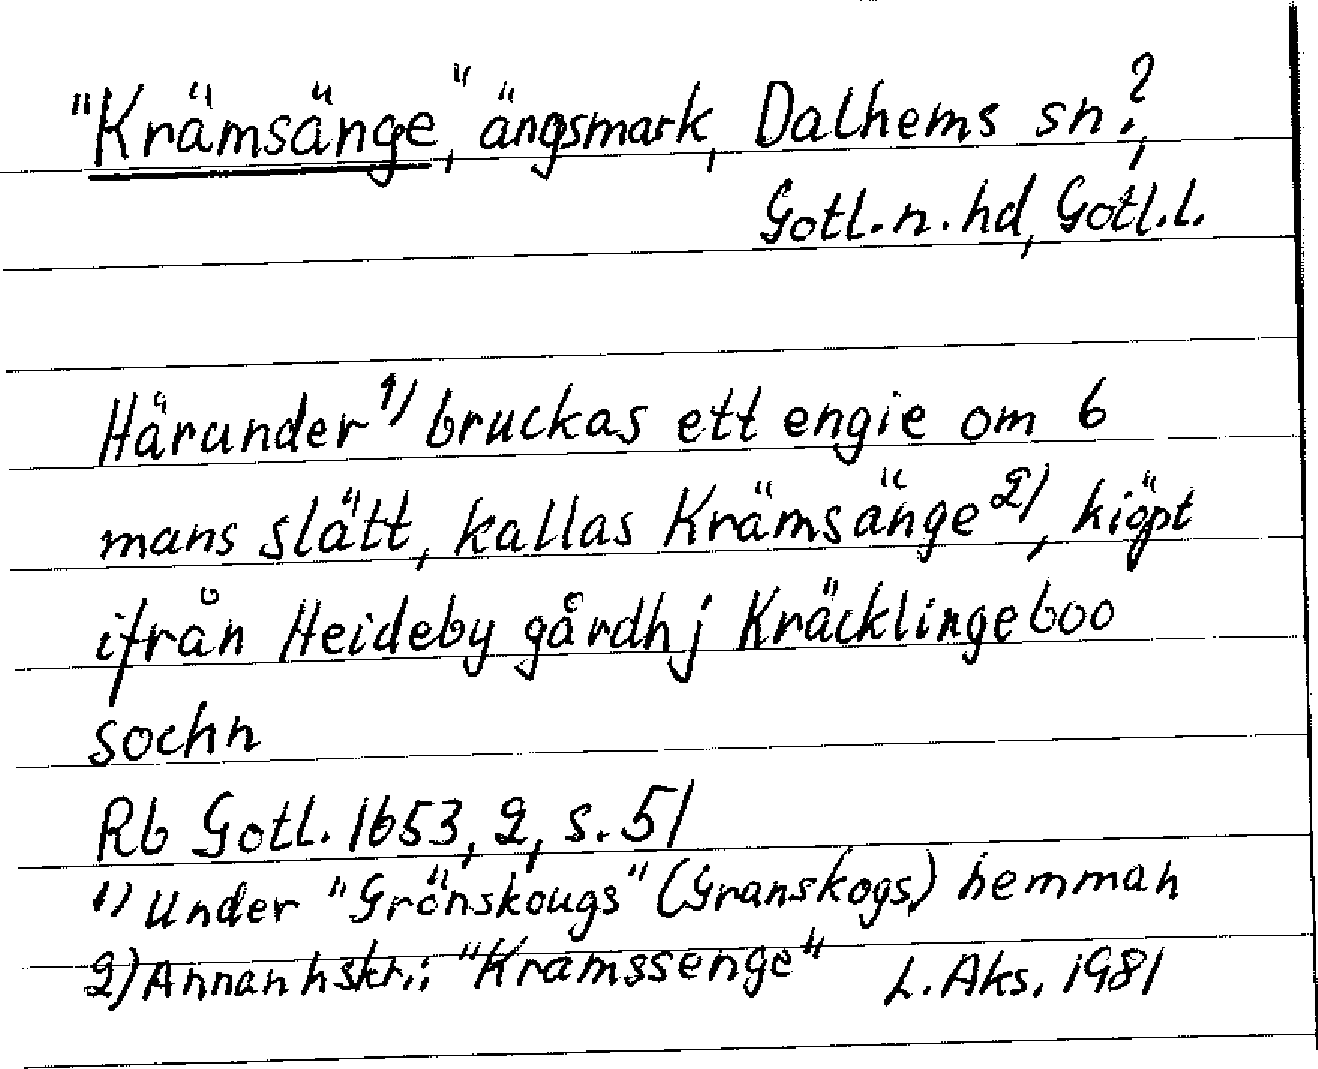 "Krämsänge," ängsmark, Dalhems sn?,
Gotl. n. hd, Gotl. l.
Härunder 1) bruckas ett engie om 6
mans slätt, kallas Krämsänge 2), kiöpt
ifrån Heideby gårdh j Kräcklingeboo
sochn
Rb Gotl. 1653, 2, s. 51
1) Under "Grönskougs" (Granskogs) hemman
2) Annan hskr.: "Kramssenge" L. Aks. 1981